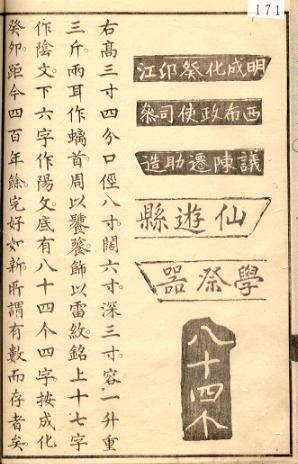 171
明成化癸卯江
西布政使司叅
議陳遷助造
仙遊縣
學祭器
八十四个
右高三寸四分口徑八寸闊六寸深三寸容一升重
三斤兩耳作螭首周以饕餮飾以雷紋銘上十七字
作陰文下六字作陽文底有八十四个四字按成化
癸卯距今四百年餘完好如新所謂有數而存者矣